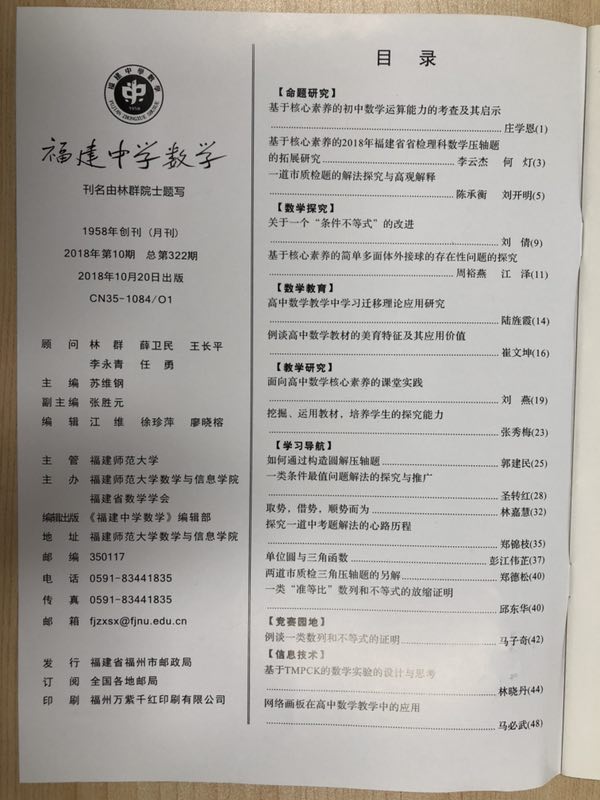 福建中学数学
刊名由林群院士题写
1958年创刊（月刊）
2018年第10期 总第322期
2018年10月20日出版
CN35-1084/O1
顾 问 林 群 薛卫民 王长平
李永青 任 勇
主 编 苏维钢
副主编 张胜元
编 辑 江 维 徐珍萍 廖晓榕
主 管 福建师范大学
主 办 福建师范大学数学与信息学院
福建省数学学会
编辑出版 《福建中学数学》编辑部
地 址 福建师范大学数学与信息学院
邮 编 350117
电 话 0591-83441835
传 真 0591-83441835
邮 箱 fjzxsx@fjnu.edu.cn
发 行 福建省福州市邮政局
订 阅 全国各地邮局
印 刷 福州万紫千红印刷有限公司
目 录
【命题研究】
基于核心素养的初中数学运算能力的考查及其启示
庄学恩(1)
基于核心素养的2018年福建省省检理科数学压轴题
的拓展研究 李云杰 何 灯(3)
一道市质检题的解法探究与高观解释
陈承衡 刘开明(5)
【数学探究】
关于一个“条件不等式”的改进
刘 倩(9)
基于核心素养的简单多面体外接球的存在性问题的探究
周裕燕 江 泽(11)
【数学教育】
高中数学教学中学习迁移理论应用研究
陆旌霞(14)
例谈高中数学教材的美育特征及其应用价值
崔文坤(16)
【教学研究】
面向高中数学核心素养的课堂实践
刘 燕(19)
挖掘、运用教材，培养学生的探究能力
张秀梅(23)
【学习导航】
如何通过构造圆解压轴题 郭建民(25)
一类条件最值问题解法的探究与推广
圣转红(28)
取势，借势，顺势而为 林嘉慧(32)
探究一道中考题解法的心路历程
郑锦枝(35)
单位圆与三角函数 彭江伟芷(37)
两道市质检三角压轴题的另解 郑德松(40)
一类“准等比”数列和不等式的放缩证明
邱东华(40)
【竞赛园地】
例谈一类数列和不等式的证明 马子奇(42)
【信息技术】
基于TMPCK的数学实验的设计与思考
林晓丹(44)
网络画板在高中数学教学中的应用
马必武(48)